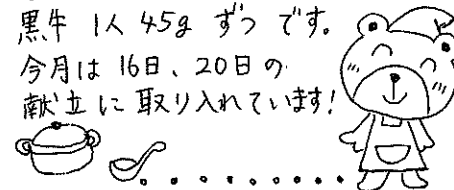 黒牛 1人 45g ずつ です。
今月は 16日、20日の
献立に 取り入れています!